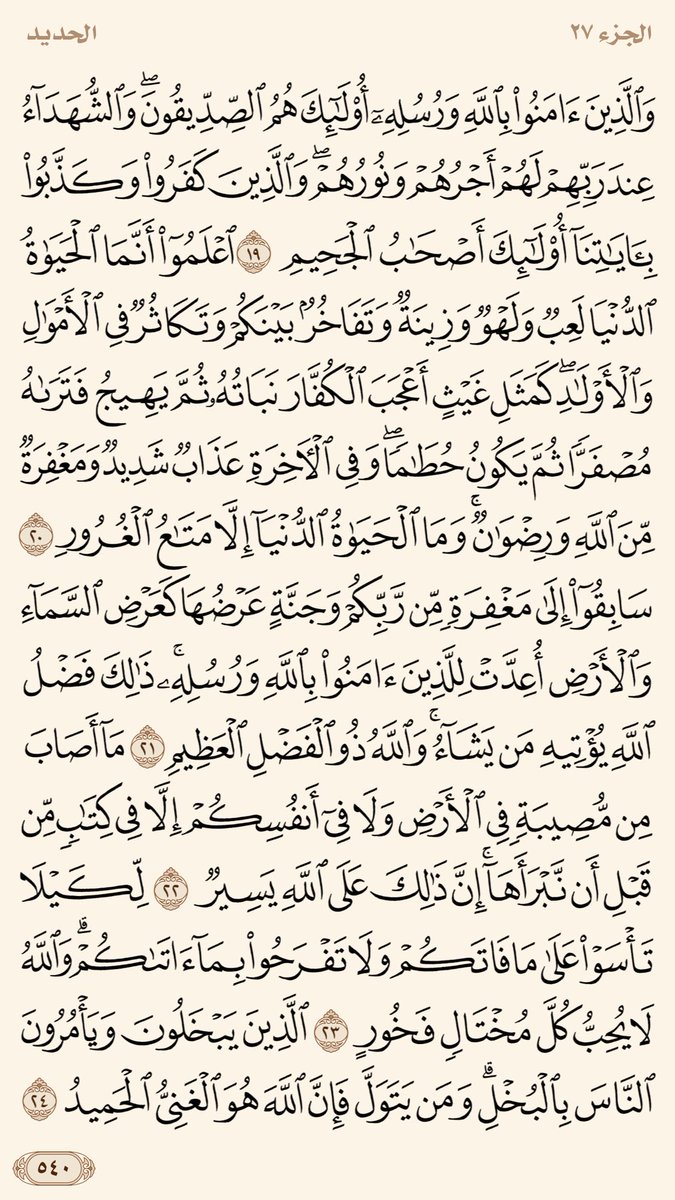 الجزء ٢٧
الحديد
وَٱلَّذِينَ ءَامَنُواْ بِٱللَّهِ وَرُسُلِهِۦٓ أُوْلَـٰٓئِكَ هُمُ ٱلصِّدِّيقُونَۖ وَٱلشُّهَدَآءُ
عِندَ رَبِّهِمۡ لَهُمۡ أَجۡرُهُمۡ وَنُورُهُمۡۖ وَٱلَّذِينَ كَفَرُواْ وَكَذَّبُواْ
بِـَٔايَٰتِنَآ أُوْلَـٰٓئِكَ أَصۡحَٰبُ ٱلۡجَحِيمِ ١٩ ٱعۡلَمُوٓاْ أَنَّمَا ٱلۡحَيَوٰةُ
ٱلدُّنۡيَا لَعِبٞ وَلَهۡوٞ وَزِينَةٞ وَتَفَاخُرُۢ بَيۡنَكُمۡ وَتَكَاثُرٞ فِي ٱلۡأَمۡوَٰلِ
وَٱلۡأَوۡلَٰدِۖ كَمَثَلِ غَيۡثٍ أَعۡجَبَ ٱلۡكُفَّارَ نَبَاتُهُۥ ثُمَّ يَهِيجُ فَتَرَىٰهُ
مُصۡفَرّٗا ثُمَّ يَكُونُ حُطَٰمٗاۖ وَفِي ٱلۡأٓخِرَةِ عَذَابٞ شَدِيدٞ وَمَغۡفِرَةٞ
مِّنَ ٱللَّهِ وَرِضۡوَٰنٞۚ وَمَا ٱلۡحَيَوٰةُ ٱلدُّنۡيَآ إِلَّا مَتَٰعُ ٱلۡغُرُورِ ٢٠
سَابِقُوٓاْ إِلَىٰ مَغۡفِرَةٖ مِّن رَّبِّكُمۡ وَجَنَّةٍ عَرۡضُهَا كَعَرۡضِ ٱلسَّمَآءِ
وَٱلۡأَرۡضِ أُعِدَّتۡ لِلَّذِينَ ءَامَنُواْ بِٱللَّهِ وَرُسُلِهِۦۚ ذَٰلِكَ فَضۡلُ
ٱللَّهِ يُؤۡتِيهِ مَن يَشَآءُۚ وَٱللَّهُ ذُو ٱلۡفَضۡلِ ٱلۡعَظِيمِ ٢١ مَآ أَصَابَ
مِن مُّصِيبَةٖ فِي ٱلۡأَرۡضِ وَلَا فِيٓ أَنفُسِكُمۡ إِلَّا فِي كِتَٰبٖ مِّن
قَبۡلِ أَن نَّبۡرَأَهَآۚ إِنَّ ذَٰلِكَ عَلَى ٱللَّهِ يَسِيرٞ ٢٢ لِّكَيۡلَا
تَأۡسَوۡاْ عَلَىٰ مَا فَاتَكُمۡ وَلَا تَفۡرَحُواْ بِمَآ ءَاتَىٰكُمۡۗ وَٱللَّهُ
لَا يُحِبُّ كُلَّ مُخۡتَالٖ فَخُورٍ ٢٣ ٱلَّذِينَ يَبۡخَلُونَ وَيَأۡمُرُونَ
ٱلنَّاسَ بِٱلۡبُخۡلِۗ وَمَن يَتَوَلَّ فَإِنَّ ٱللَّهَ هُوَ ٱلۡغَنِيُّ ٱلۡحَمِيدُ ٢٤
٥٤٠